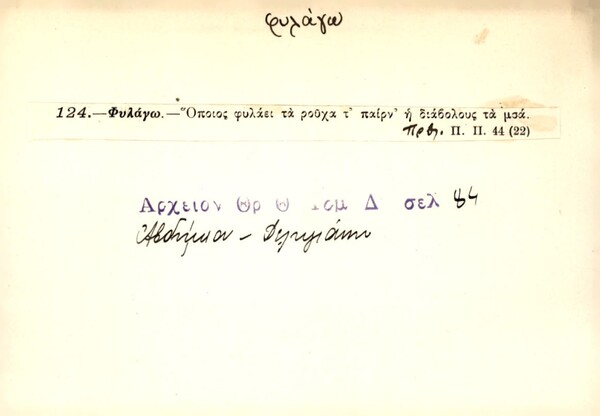 φυλάγω
124.—Φυλάγω.—Ὅποιος φυλάει τὰ ροῦχα τ' παίρν' ἡ διάβολους τὰ μσά.
Πρβλ. Π. Π. 44 (22)
Αρχειον Θρ Θ Τομ Δ σελ 84
Αβδήμιον –